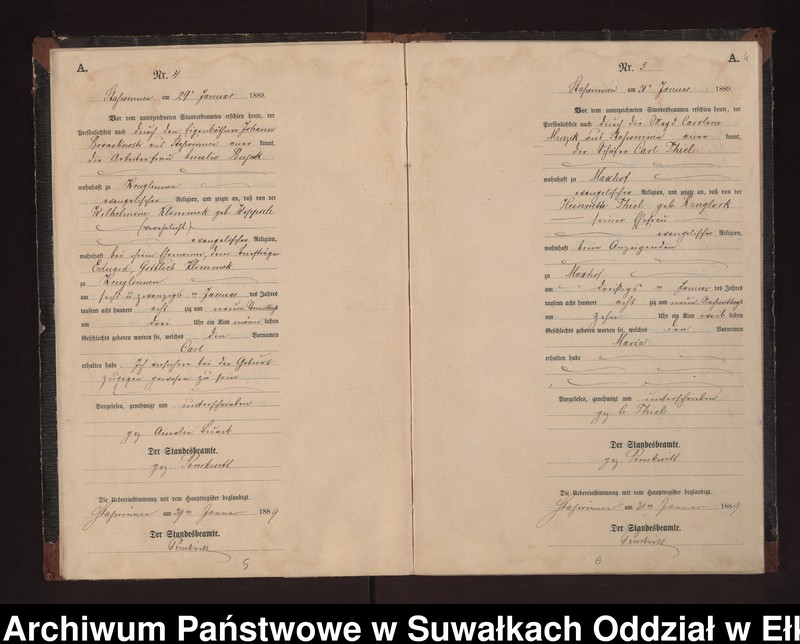 A.
Nr. 4
am 29ⁿ Januar 1889.
Vor dem unterzeichneten Standesbeamten erschien heute, der
Persönlichkeit nach durch den Eigenkäthner Johann
aus kannt,
die Arbeiterfrau Amalie
wohnhaft zu
evangelischer Religion, und zeigte an, daß von der
Wilhelmine Klemmek geb
evangelischer Religion,
wohnhaft bei ihrem Ehemann, dem
Eduard, Gottlieb Klemmek
zu
am sechs u zwanzigs ten Januar des Jahres
tausend acht hundert acht zig und neun Vormittags
um drei Uhr ein Kind männ lichen
Geschlechts geboren worden sei, welches den Vornamen
Carl
erhalten habe. Ich versichere bei der Geburt
zugegen gewesen zu sein
Vorgelesen, genehmigt und unterschrieben
gez Amalie
Der Standesbeamte.
gez
Die Uebereinstimmung mit dem Hauptregister beglaubigt.
am 29ten Januar 1889
Der Standesbeamte.
5
A. 4
Nr. 5
am Januar 1889
Vor dem unterzeichneten Standesbeamten erschien heute, der
Persönlichkeit nach durch die Magd Caroline
aus kannt,
der Schäfer Carl Thiel
wohnhaft zu Maxhof
evangelischer Religion, und zeigte an, daß von der
Heinriette Thiel geb
seiner Ehefrau
evangelischer Religion,
wohnhaft beim Anzeigenden
zu Maxhof
am dreißigs ten Januar des Jahres
tausend acht hundert acht zig und neun Nachmittags
um zehn Uhr ein Kind weib lichen
Geschlechts geboren worden sei, welches den Vornamen
Maria
erhalten habe
Vorgelesen, genehmigt und unterschrieben
gez C. Thiel
Der Standesbeamte.
gez
Die Uebereinstimmung mit dem Hauptregister beglaubigt.
am Januar 1889
Der Standesbeamte.
Archiwum Państwowe w Suwałkach Oddział w Eł